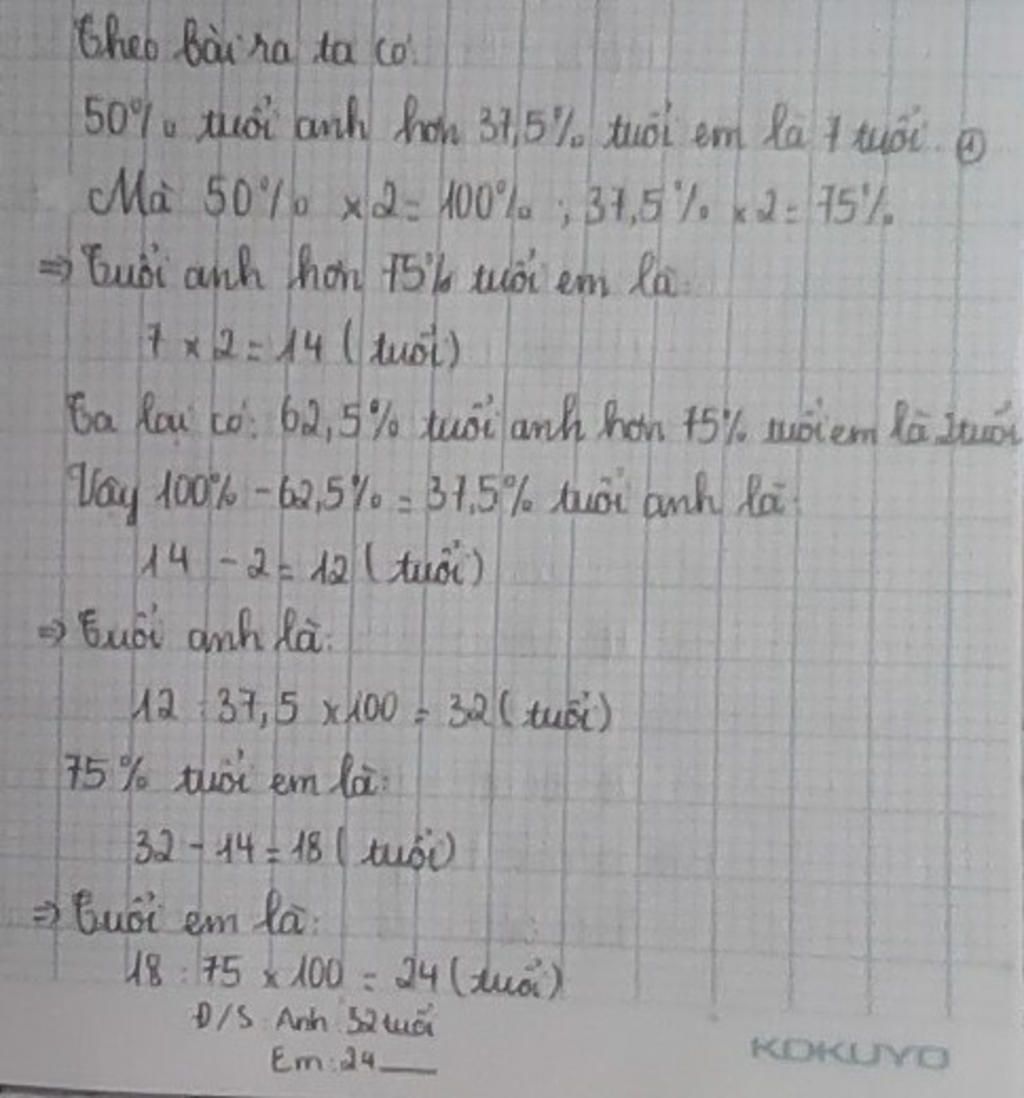 Theo bài ra ta có:
50% tuổi anh hơn 37,5% tuổi em là 7 tuổi. ①
Mà 50% x 2 = 100% ; 37,5% x 2 = 75%
=> Tuổi anh hơn 75% tuổi em là:
7 x 2 = 14 (tuổi)
Ta lại có: 62,5% tuổi anh hơn 75% tuổi em là 2 tuổi
Vậy 100% - 62,5% = 37,5% tuổi anh là:
14 - 2 = 12 (tuổi)
=> Tuổi anh là:
12 : 37,5 x 100 = 32 (tuổi)
75% tuổi em là:
32 - 14 = 18 (tuổi)
=> Tuổi em là:
18 : 75 x 100 = 24 (tuổi)
Đ/S: Anh: 32 tuổi
Em: 24 __
KOKUYO